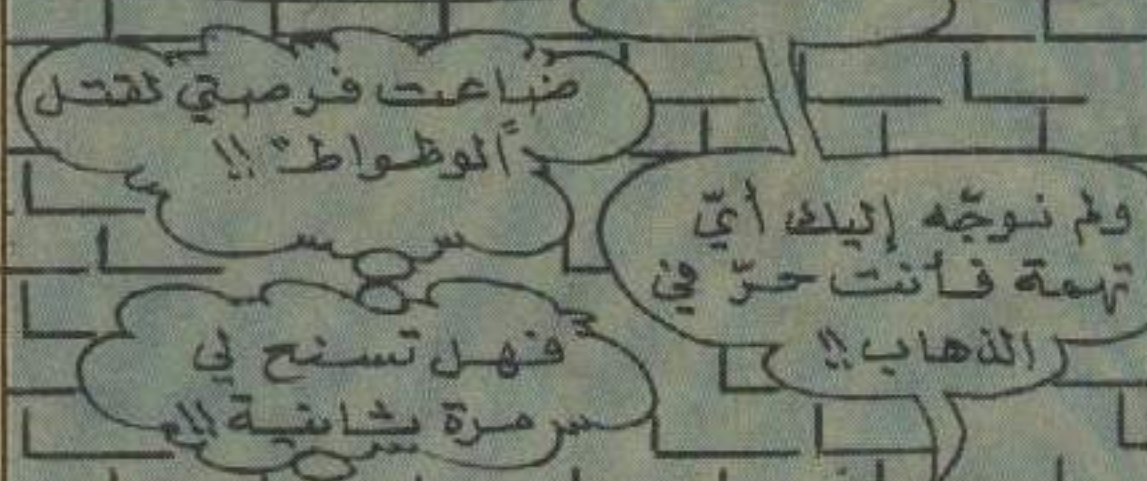 ولم نوجّه إليك أيّ
تهمة فأنت حرّ في
الذهاب!!
ضاعت فرصتي لقتل
"الوطواط"!!
فهل تسنح لي
مرة ثانية!!